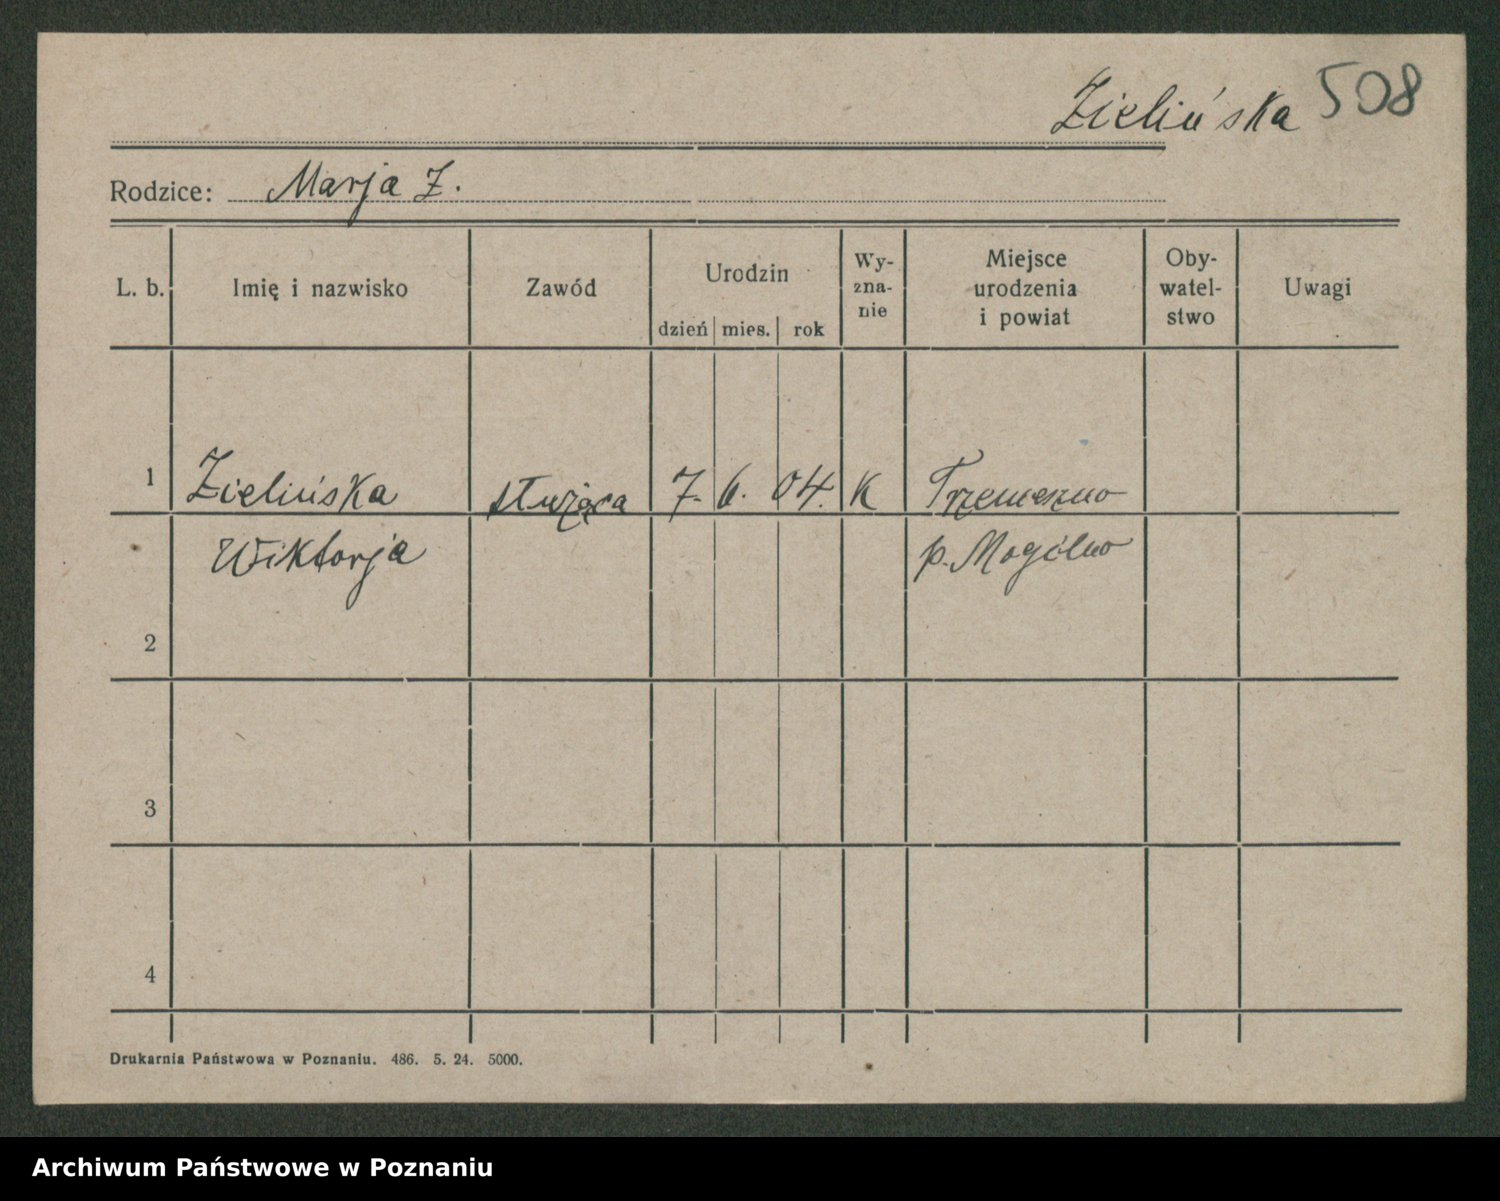 Zielińska 508
Rodzice: Marja Z.
L. b. Imię i nazwisko Zawód Urodzin Wy- Miejsce Oby- Uwagi
zna- urodzenia watel-
nie i powiat stwo
dzień mies. rok
1 Zielińska służąca 7. 6. 04. K Trzemeszno
Wiktorja p. Mogilno
2
3
4
Drukarnia Państwowa w Poznaniu. 486. 5. 24. 5000.
Archiwum Państwowe w Poznaniu